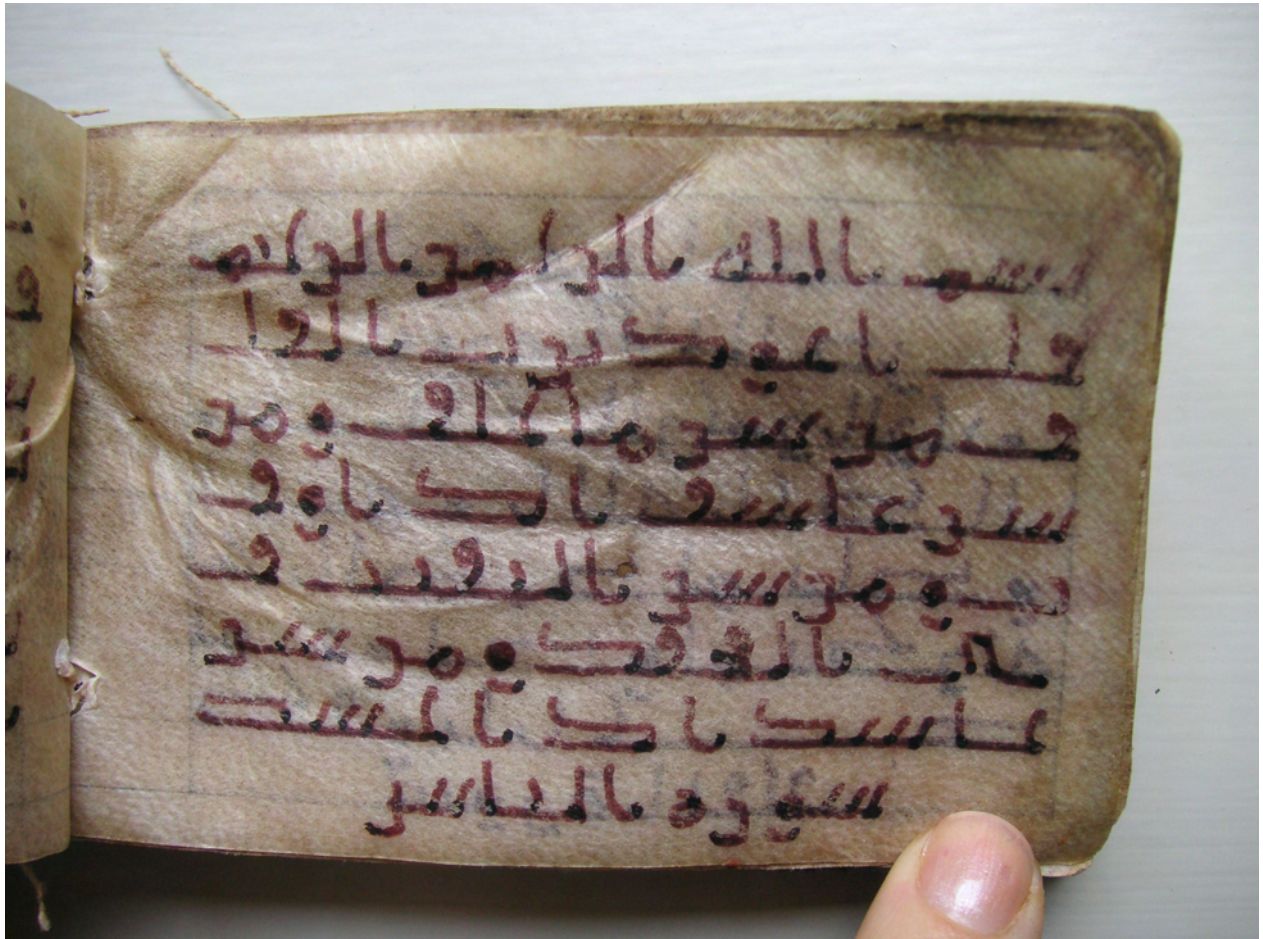 بسم الله الرحمن الرحيم
قل اعوذ برب الفل
ق من شر ما خلق و من
شر غاسق اذا وق
ب و من شر النفثت ف
ى العقد و من شر
حاسد اذا حسد
سورة الناس